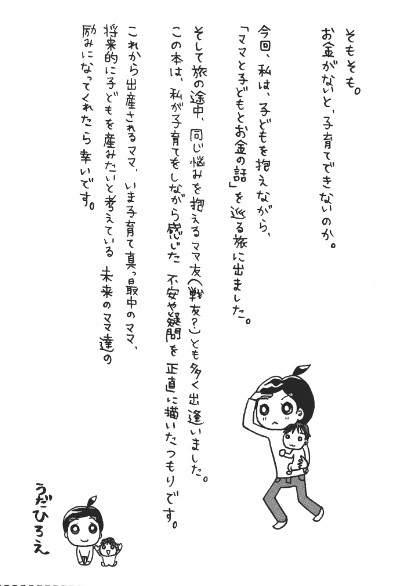 そもそも。
お金がないと、子育てできないのか。
今回、私は、子どもを抱えながら、
「ママと子どもとお金の話」を巡る旅に出ました。
そして旅の途中、同じ悩みを抱えるママ友(戦友?)とも多く出逢いました。
この本は、私が子育てをしながら感じた不安や疑問を正直に描いたつもりです。
これから出産されるママ、いま子育て真っ最中のママ、
将来的に子どもを産みたいと考えている未来のママ達の
励みになってくれたら幸いです。
うだひろえ